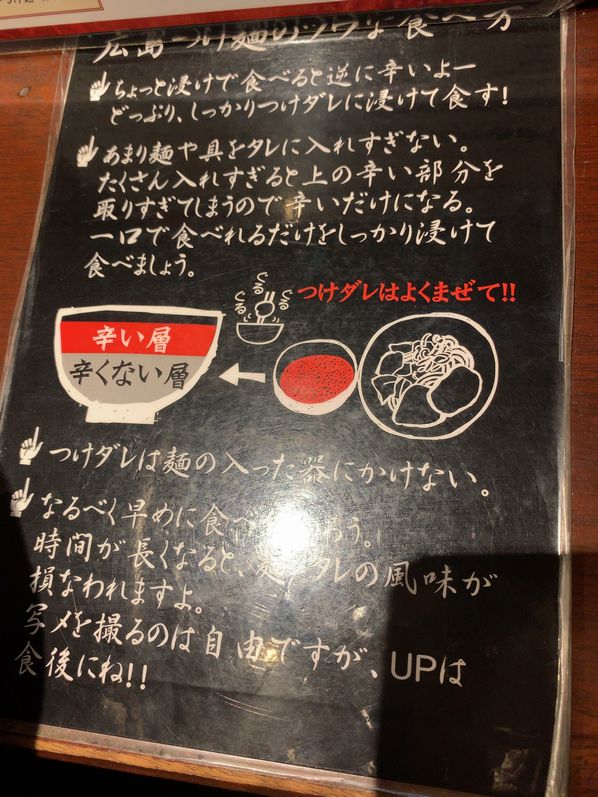 広島つけ麺のツウな食べ方
ちょっと浸けで食べると逆に辛いよー
どっぷり、しっかりつけダレに浸けて食す!
あまり麺や具をタレに入れすぎない。
たくさん入れすぎると上の辛い部分を
取りすぎてしまうので辛いだけになる。
一口で食べれるだけをしっかり浸けて
食べましょう。
ぐる
ぐる
ぐる
つけダレはよくまぜて!!
辛い層
辛くない層
つけダレは麺の入った器にかけない。
なるべく早めに食べ
う。
時間が長くなると、麺、タレの風味が
損なわれますよ。
写メを撮るのは自由ですが、UPは
食後にね!!